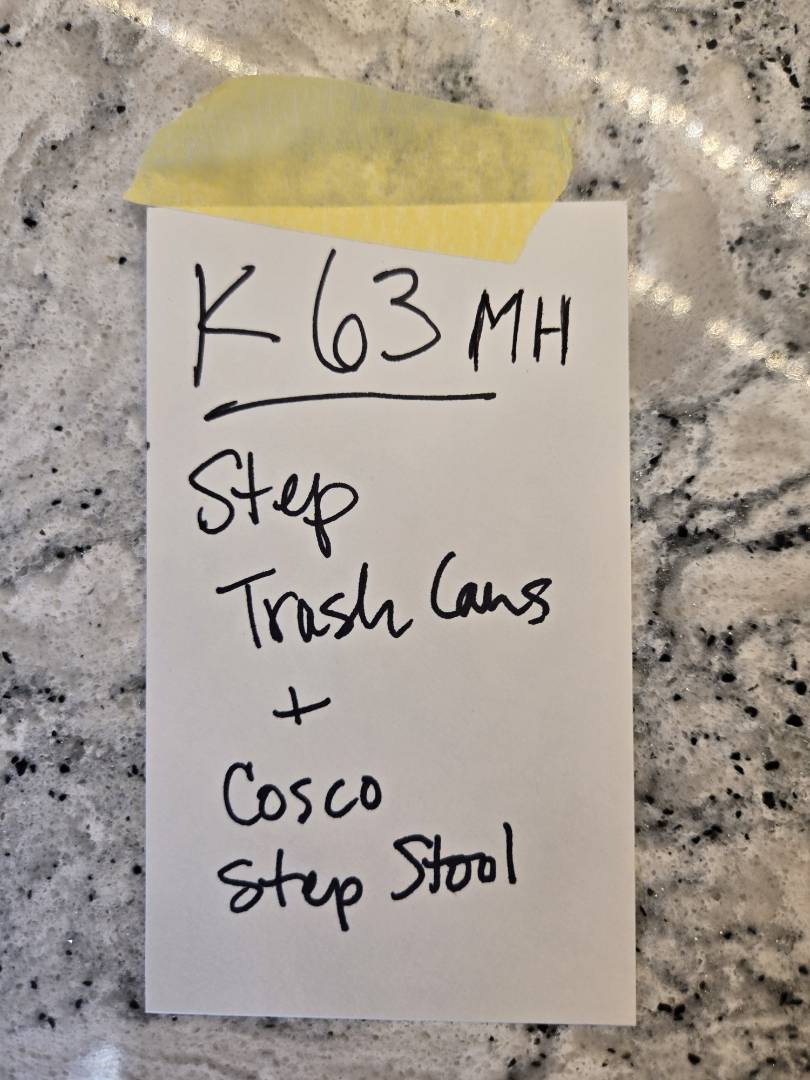 K 63 MH
Step
Trash Cans
+
Cosco
Step Stool